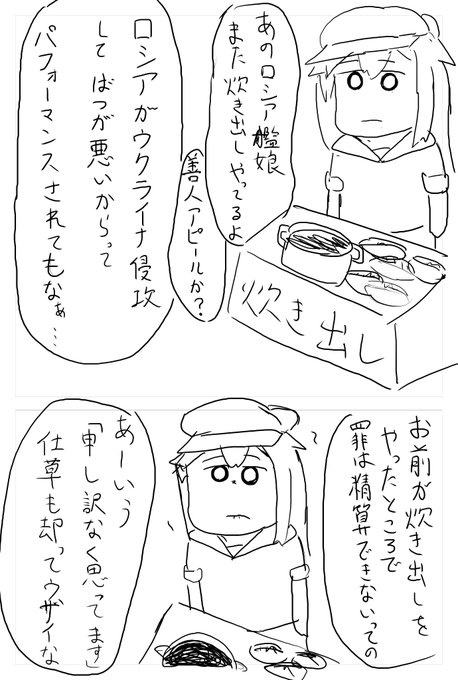 あのロシア艦娘
また炊き出しやってるよ
善人アピールか？
ロシアがウクライナ侵攻
してばつが悪いからって
パフォーマンスされてもなぁ…
炊き出し
お前が炊き出しを
やったところで
罪は精算できないっての
あーいう
「申し訳なく思ってます」
仕草も却ってウザイな